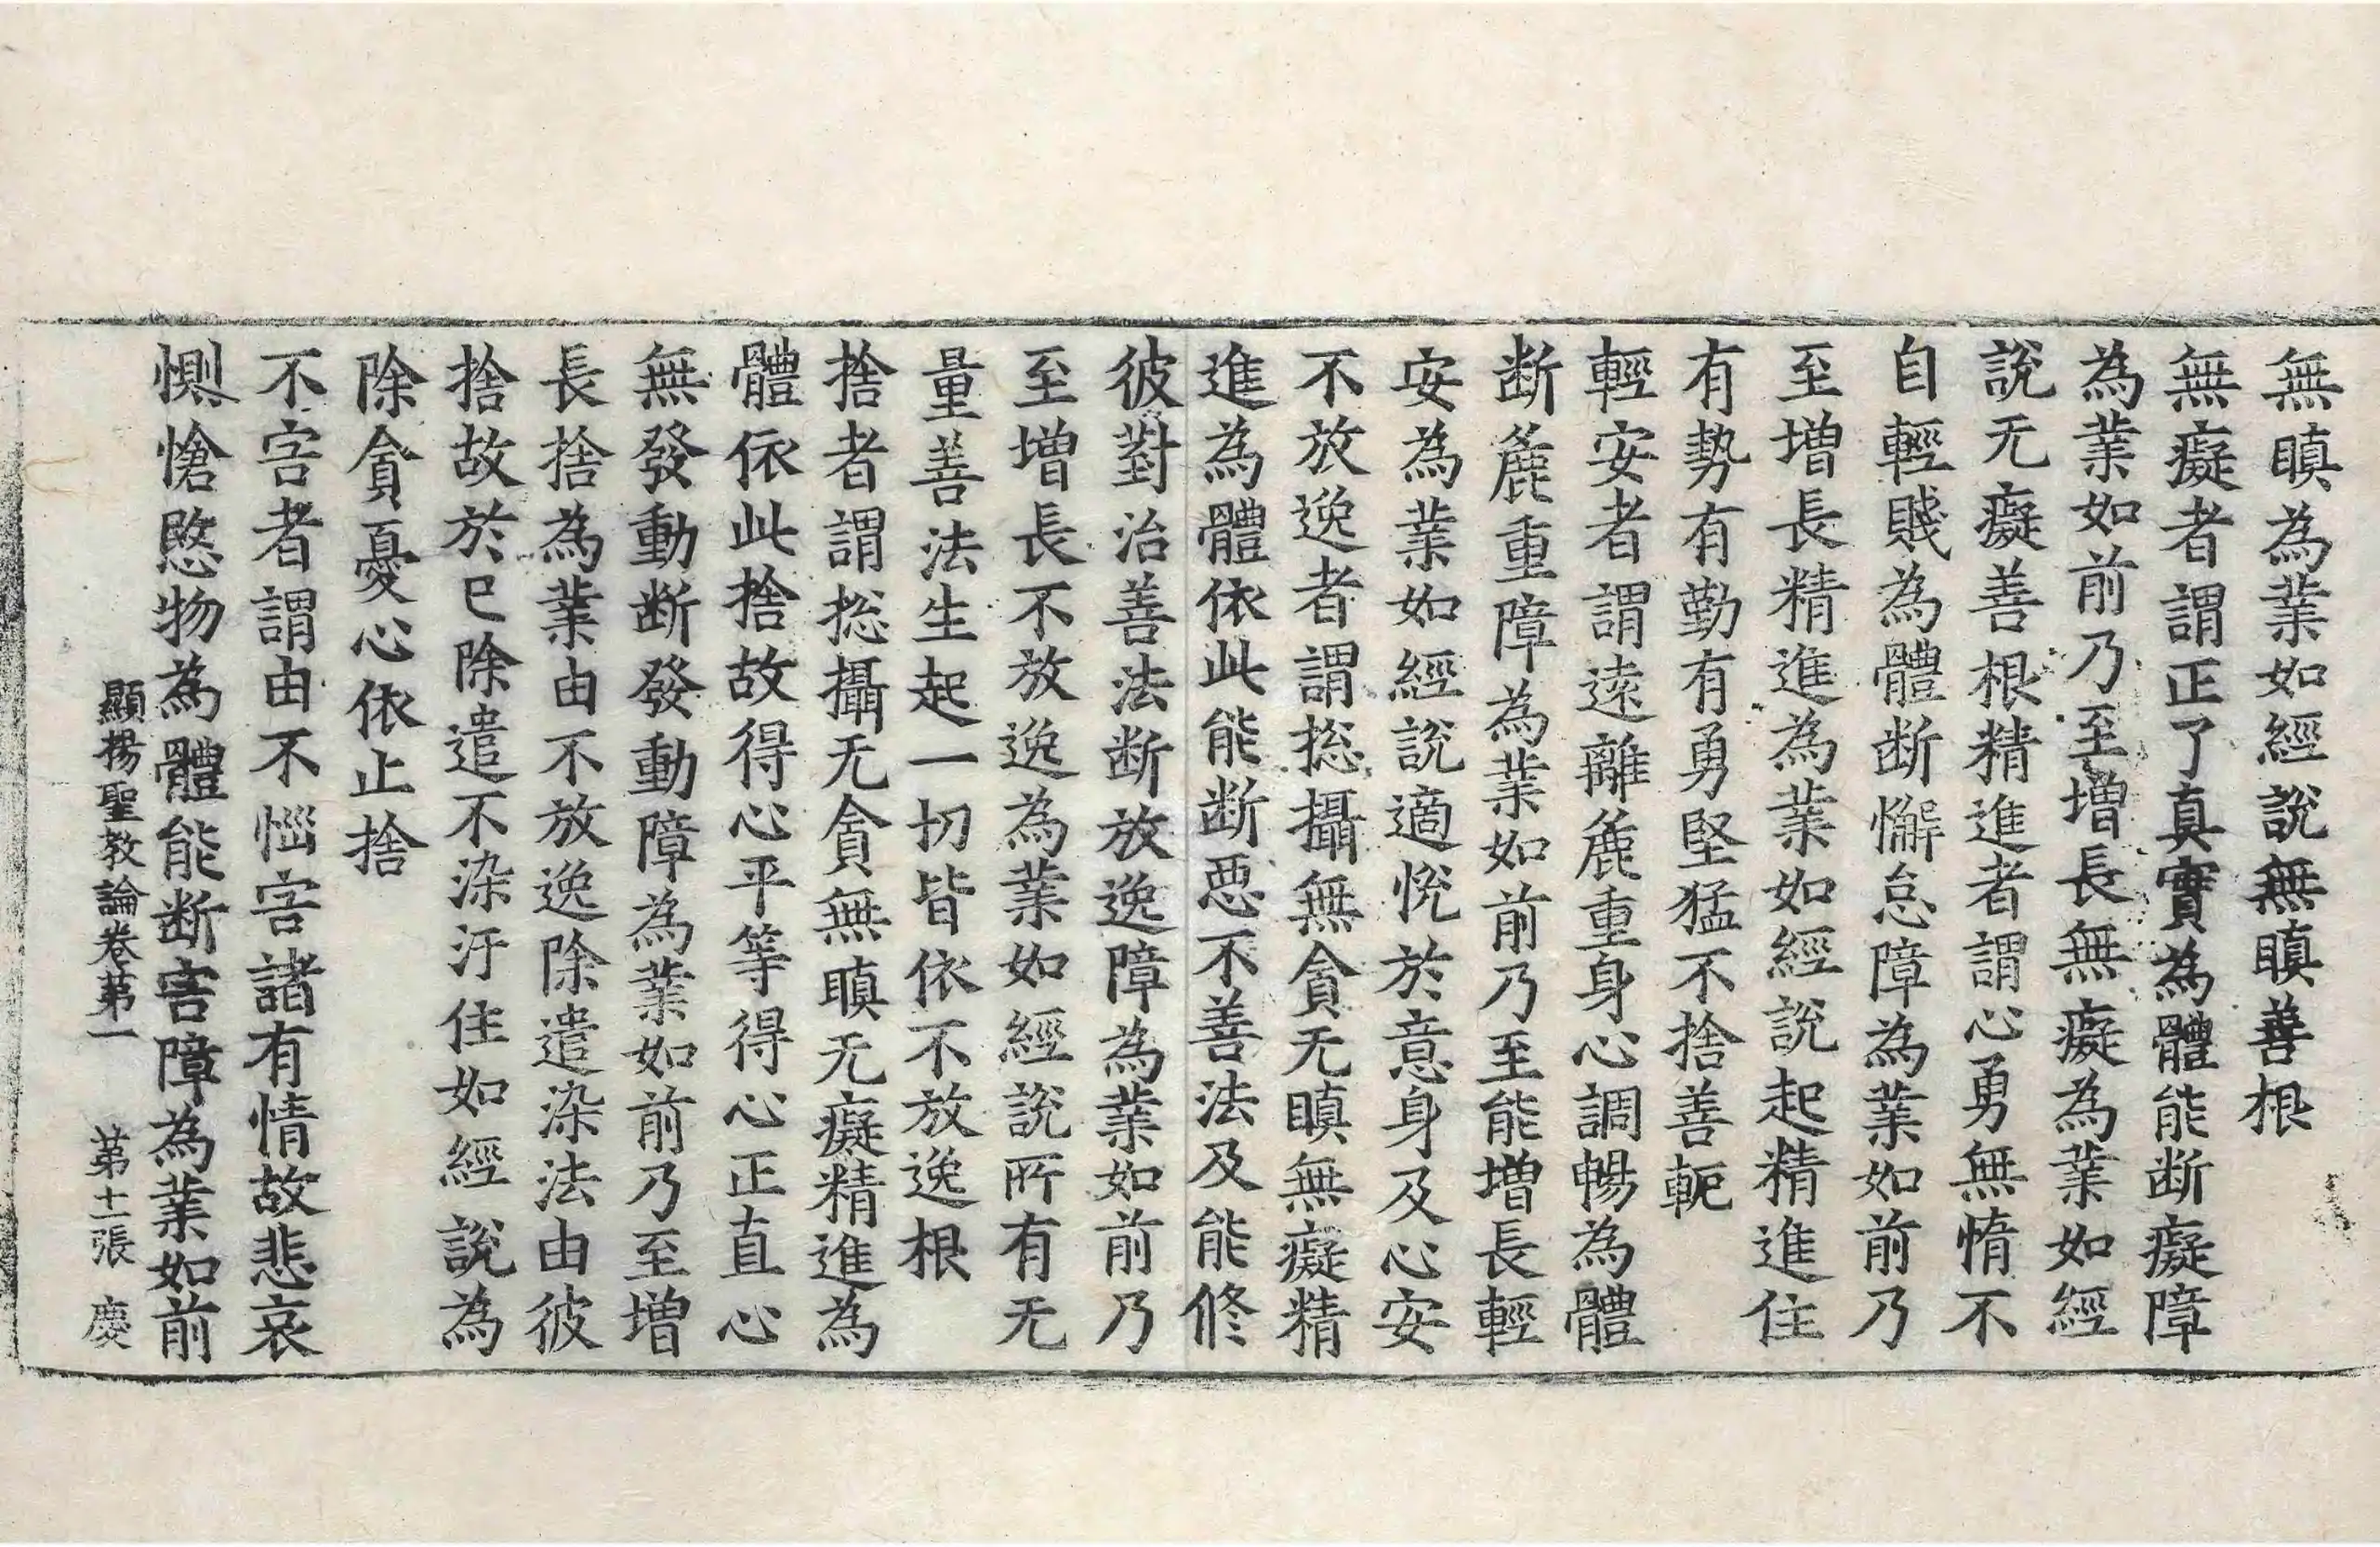 無瞋為業如經說無瞋善根
無癡者謂正了真實為體能断癡障
為業如前乃至增長無癡為業如經
說无癡善根精進者謂心勇無惰不
自輕賤為體断懈怠障為業如前乃
至增長精進為業如經說起精進住
有勢有勤有勇堅猛不捨善軛
輕安者謂遠離麁重身心調暢為體
断麁重障為業如前乃至能增長輕
安為業如經說適悅於意身及心安
不放逸者謂捴攝無貪无瞋無癡精
進為體依此能断惡不善法及能修
彼對治善法断放逸障為業如前乃
至增長不放逸為業如經說所有无
量善法生起一切皆依不放逸根
捨者謂捴攝无貪無瞋无癡精進為
體依此捨故得心平等得心正直心
無發動断發動障為業如前乃至增
長捨為業由不放逸除遣染法由彼
捨故於已除遣不染汙住如經說為
除貪憂心依止捨
不害者謂由不惱害諸有情故悲哀
惻愴愍物為體能断害障為業如前
顯揚聖教論卷苐一　苐十一張　慶